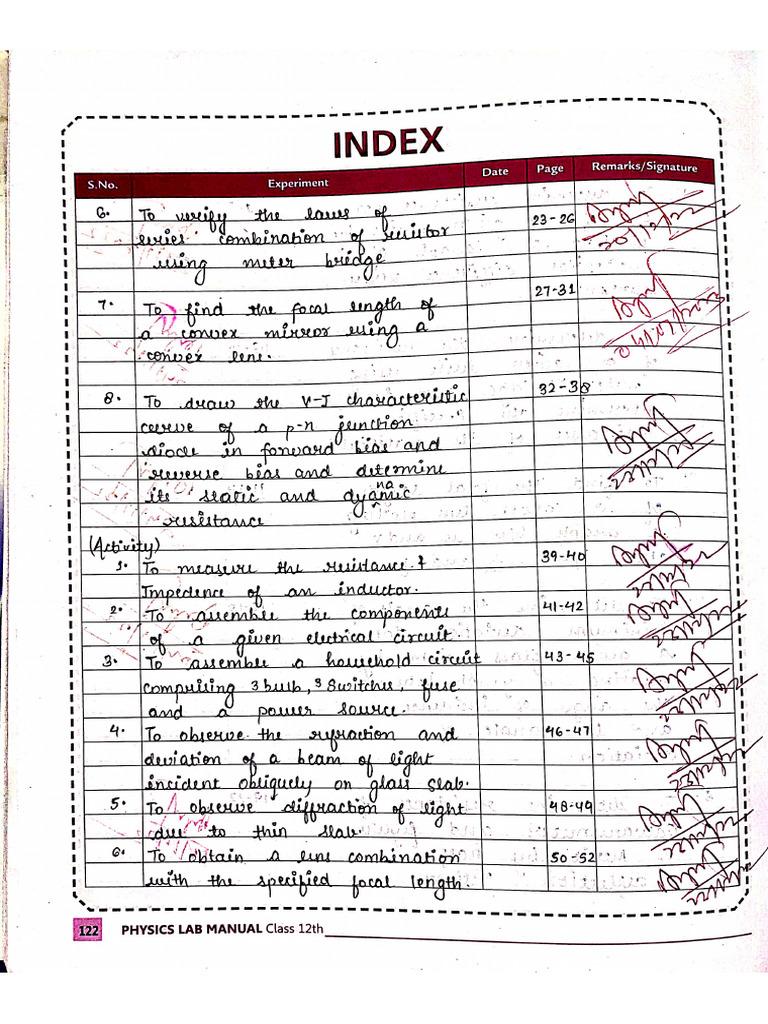 INDEX
S.No. Experiment Date Page Remarks/Signature
6. To verify the laws of 23-26
series combination of resistor
using meter bridge
27-31
7. To find the focal length of
a convex mirror using a
convex lens.
8. To draw the V-I characteristic 32-38
curve of a p-n junction
diode in forward bias and
reverse bias and determine
its static and dynamic
resistance
(Activity)
1. To measure the resistance & 39-40
Impedence of an inductor.
2. To assemble the components 41-42
of a given electrical circuit.
3. To assemble a household circuit 43-45
comprising 3 bulb, 3 Switches, fuse
and a power source.
4. To observe the refraction and 46-47
deviation of a beam of light
incident obliquely on glass slab.
5. To observe diffraction of light 48-49
due to thin slab.
6. To obtain a lens combination 50-52
with the specified focal length.
122 PHYSICS LAB MANUAL Class 12th